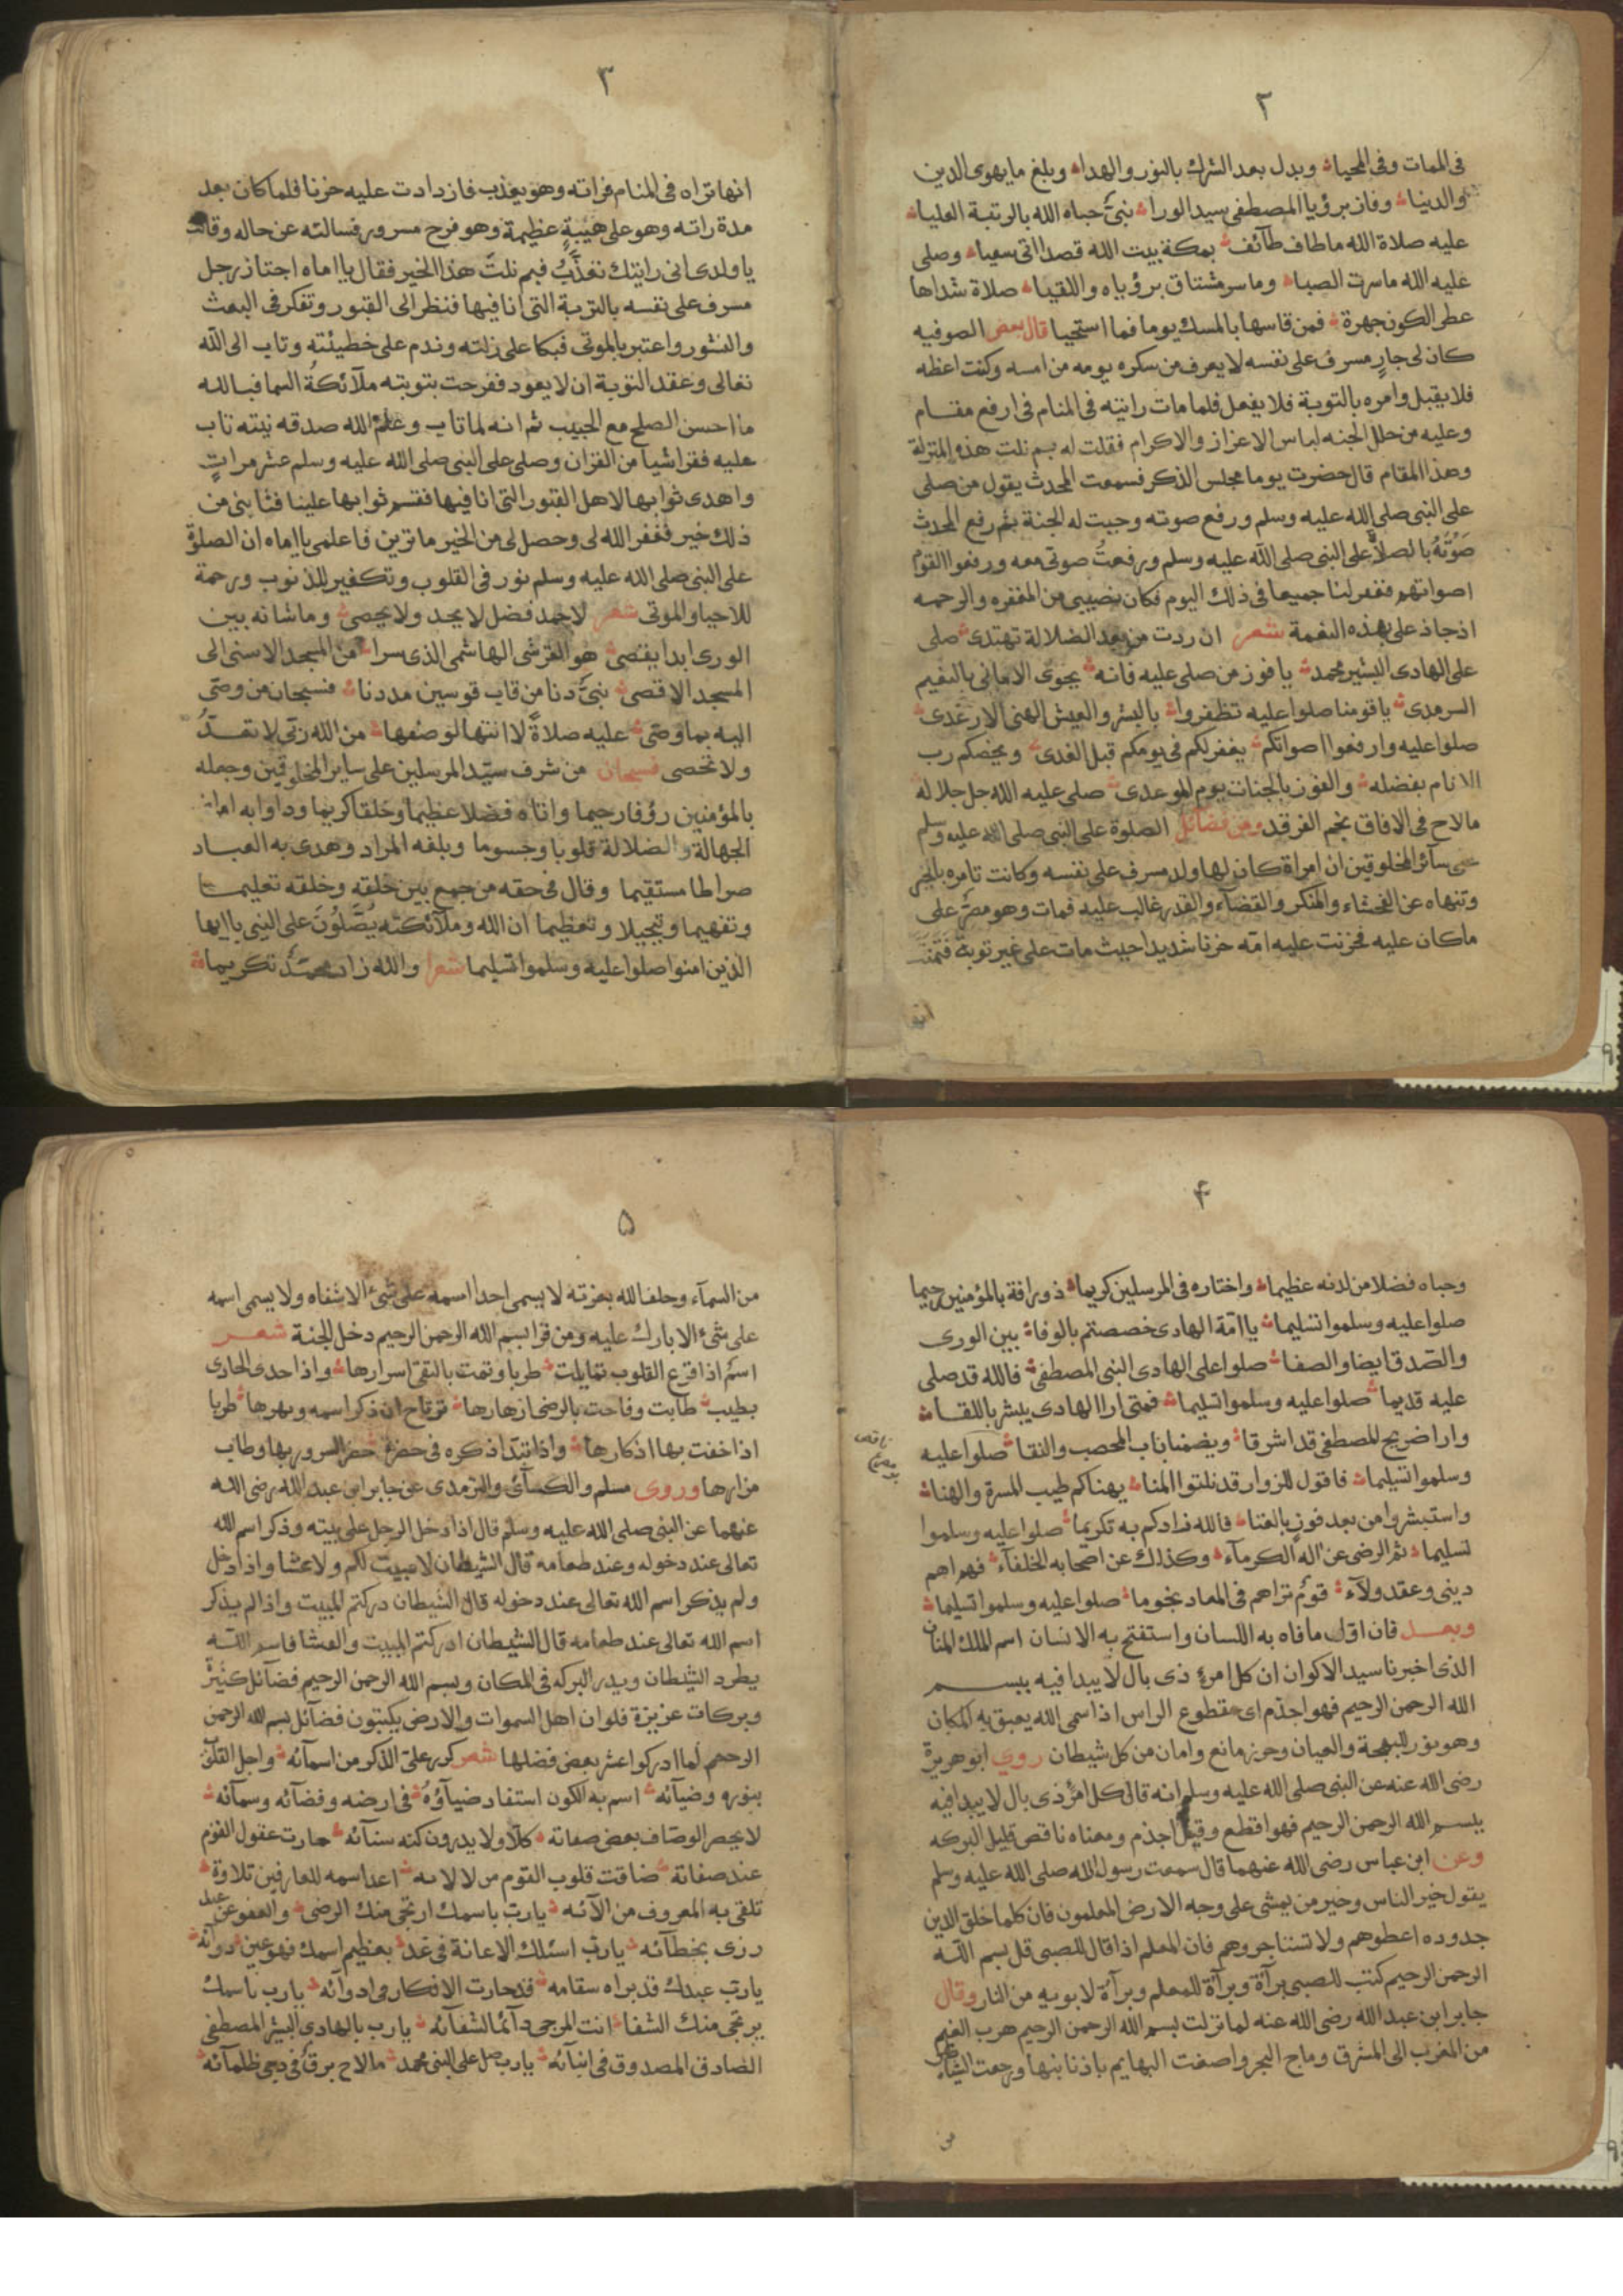 ٢
فى الممات وفى المحيا وبدل بعد الشرك بالنور والهدا وبلغ ما يهوى الدين
والدنيا وفاز برؤيا المصطفى سيد الورا نبىٌّ حباه الله بالرتبة العليا
عليه صلاة الله ما طاف طآئف بمكة بيت الله قصدا اتى سعيا وصلى
عليه الله ما سرت الصبا وما سر مشتاق برؤياه واللقيا صلاة شداها
عطر الكون جهرة فمن قاسها بالمسك يوما فما استحيا قال بعض الصوفيه
كان لى جارٍ مسرف على نفسه لا يعرف من سكره يومه من امسه وكنت اعظه
فلا يقبل وامره بالتوبة فلا يفعل فلما مات رايته فى المنام فى ارفع مقام
وعليه من حلل الجنه لباس الاعزاز والاكرام فقلت له بم نلت هذه المنزلة
وهذا المقام قال حضرت يوما مجلس الذكر فسمعت المحدث يقول من صلى
على النبى صلى الله عليه وسلم ورفع صوته وجبت له الجنة ثم رفع المحدث
صَوْتَهُ بالصلاة على النبى صلى الله عليه وسلم ورفعتُ صوتى معه ورفعوا القوم
اصواتهم فغفر لنا جميعا فى ذلك اليوم فكان نصيبى من المغفره والرحمه
اذ جاد على بهذه النعمة شعر ان ردت من بعد الضلالة تهتدى صلى
على الهادى البشير محمد يا فوز من صلى عليه فانه يحوى الامانى بالنعيم
السرمدى يا قومنا صلوا عليه تظفروا بالبشر والعيش الهنى الارغدى
صلوا عليه وارفعوا اصواتكم يغفر لكم فى يومكم قبل الغدى ويخصكم رب
الانام بفضله والفوز بالجنات يوم الموعدى صلى عليه الله جل جلاله
مالاح فى الافاق نجم الفرقد ومن فضائل الصلوة على النبى صلى الله عليه وسلم
على سآئر المخلوقين ان امراة كان لها ولد مسرف على نفسه وكانت تامره بالخير
وتنهاه عن الفحشاء والمنكر والقضآء والقدر غالب عليه فمات وهو مصر على
ماكان عليه فحزنت عليه امه حزنا شديدا حيث مات على غير توبة فتمنت
انها
٣
انها تراه فى المنام فراته وهو يعذب فازدادت عليه حزنا فلما كان بعد
مدة راته وهو على هَيْبَةٍ عظيمة وهو فرح مسرور فسالته عن حاله وقالت
يا ولدى انى رايتك تعذَّبُ فبم نلتَ هذا الخير فقال يا اماه اجتاز رجل
مسرف على نفسه بالتربة التى انا فيها فنظر الى القبور وتفكر فى البعث
والنشور واعتبر بالموتى فبكا على زلته وندم على خطيئته وتاب الى الله
تعالى وعقد التوبة ان لا يعود ففرحت بتوبته ملآئكة السما فيا لله
ما احسن الصلح مع الحبيب ثم انه لما تاب وعلم الله صدقه نيته تاب
عليه فقرا شيا من القران وصلى على النبى صلى الله عليه وسلم عشر مراتٍ
واهدى ثوابها لاهل القبور التى انا فيها فقسم ثوابها علينا فنابنى من
ذلك خير فغفر الله لى وحصل لى من الخير ما ترين فاعلمى يا اماه ان الصلوة
على النبى صلى الله عليه وسلم نور فى القلوب وتكفير للذنوب ورحمة
للاحيا والموتى شعر لاحمد فضل لا يحد ولا يحصى وماشانه بين
الورى ابدا ينقصى هو القرشى الهاشمى الذى سرا من المسجد الاسنى الى
المسجد الاقصى نبىٌّ دنا من قاب قوسين مددنا فسبحان من وصى
اليه بما وصّى عليه صلاةً لا انتها لوصفها من الله ربى لا تعدُّ
ولا تحصى فسبحان من شرف سيّد المرسلين على ساير المخلوقين وجعله
بالمؤمنين رؤفا رحيما واتاه فضلا عظيما وخلقا كريما ودآوا به امراض
الجهالة والضلالة قلوبا وجسوما وبلغه المراد وهدى به العباد
صراطا مستقيما وقال فى حقه من جمع بين خلقه وخلقه تعليما
وتفهيما وتبجيلا وتعظيما ان الله وملآئكته يُصَّلُوْنَ على النبى يا ايها
الذين امنوا صلوا عليه وسلموا تسليما شعرا والله زاد محمدٌ تكريما
٤
وحباه فضلا من لدنه عظيما واختاره فى المرسلين كريما ذو رافة بالمؤمنين رحيما
صلوا عليه وسلموا تسليما يا امّة الهادى خصصتم بالوفا بين الورى
والصّدق ايضا والصفا صلوا على الهادى النبى المصطفى فالله قد صلى
عليه قديما صلوا عليه وسلموا تسليما فمتى ارا الهادى يبشر باللقا
وارا ضريح المصطفى قد اشرقا ويضمنا باب المحصب والنقا صلوا عليه
وسلموا تسليما فاقول للزوار قد نلتوا المنا يهناكم طيب المسرة والهنا
واستبشروا من بعد فوز بالغنا فالله زادكم به تكريما صلوا عليه وسلموا
تسليما ثم الرضى عن اله الكرمآء وكذلك عن اصحابه الخلفآء فهم اهم
دينى وعقد ولآء قومٌ تراهم فى المعاد نجوما صلوا عليه وسلموا تسليما
وبعد فان اول ما فاه به اللسان واستفتح به الانسان اسم الملك المنان
الذى اخبرنا سيد الاكوان ان كل امرئ ذى بال لا يبدا فيه ببسم
الله الرحمن الرحيم فهو اجذم اى مقطوع الراس اذا سمى الله يعبق به المكان
وهو نور للبهجة والعيان وحرز مانع وامان من كل شيطان روى ابو هريرة
رضى الله عنه عن النبى صلى الله عليه وسلم انه قال كل امرٍ ذى بال لا يبدا فيه
ببسم الله الرحمن الرحيم فهو اقطع وقيل اجذم ومعناه ناقص قليل البركه
وعن ابن عباس رضى الله عنهما قال سمعت رسول الله صلى الله عليه وسلم
يقول خير الناس وخير من يمشى على وجه الارض المعلمون فان كلما خلق الدين
جددوه اعطوهم ولا تستاجروهم فان المعلم اذا قال للصبى قل بسم الله
الرحمن الرحيم كتب للصبى برآة وبرآة للمعلم وبرآة لابويه من النار وقال
جابر ابن عبد الله رضى الله عنه لما نزلت بسم الله الرحمن الرحيم هرب الغيم
من المغرب الى المشرق وماج البحر واصغت البهايم باذنابها ورجعت الشياطين
من
ناقص
٥
من السمآء وحلف الله بعزته لا يسمى احدا اسمه على شئ الا شفاه ولا يسمى اسمه
على شئ الا بارك عليه ومن قرا بسم الله الرحمن الرحيم دخل الجنة شعر
اسمٌ اذا قرع القلوب تمايلت طربا وتمت بالتقى اسرارها واذا حدى الحادى
بطيب طابت وفاحت بالرضى ازهارها ترتاح ان ذكر اسمه وبهرها طربا
اذا خفت بها اذكارها واذا تبدّا ذكره فى حضرة حضر السرور بها وطاب
مزارها وروى مسلم والكسآئى والترمدى عن جابر ابن عبد الله رضى الله
عنهما عن النبى صلى الله عليه وسلم قال اذا دخل الرجل على بيته وذكر اسم الله
تعالى عند دخوله وعند طعامه قال الشيطان لا مبيت لكم ولا عشا واذا دخل
ولم يذكر اسم الله تعالى عند دخوله قال الشيطان دركتم المبيت واذا لم يذكر
اسم الله تعالى عند طعامه قال الشيطان ادركتم المبيت والعشا فاسم الله
يطرد الشيطان ويدر البركه فى المكان وبسم الله الرحمن الرحيم فضآئل كثيرةٌ
وبركات عزيزة فلو ان اهل السموات والارض يكتبون فضآئل بسم الله الرحمن
الرحيم لما ادركوا عشر بعض فضلها شعر كرر علىّ الذكر من اسمآئه واجل القلوب
بنوره وضيآئه اسم به الكون استفاد ضيآؤهُ فى ارضه وفضآئه وسمآئه
لا يحصر الوصّاف بعض صفاته كلّا ولا يدرون كنه سنآئه حارت عقول القوم
عند صفاته ضاقت قلوب القوم من لالايه اعد اسمه للعارفين تلاوة
تلقى به المعروف من الآئه يارب باسمك ارتجى منك الرضى والعفو عن عبد
زرى بخطآئه يارب اسئلك الاعانة فى غد بعظيم اسمك فهو عين دوآئه
يارب عبدك قد براه سقامه قد حارت الافكار فى ادوآئه يارب باسمك
يرتجى منك الشفا انت المرجى دآئما لشفآئه يارب بالهادى البشير المصطفى
الصادق المصدوق فى انبآئه يارب صل على النبى محمد مالاح برق فى دجى ظلمآئه